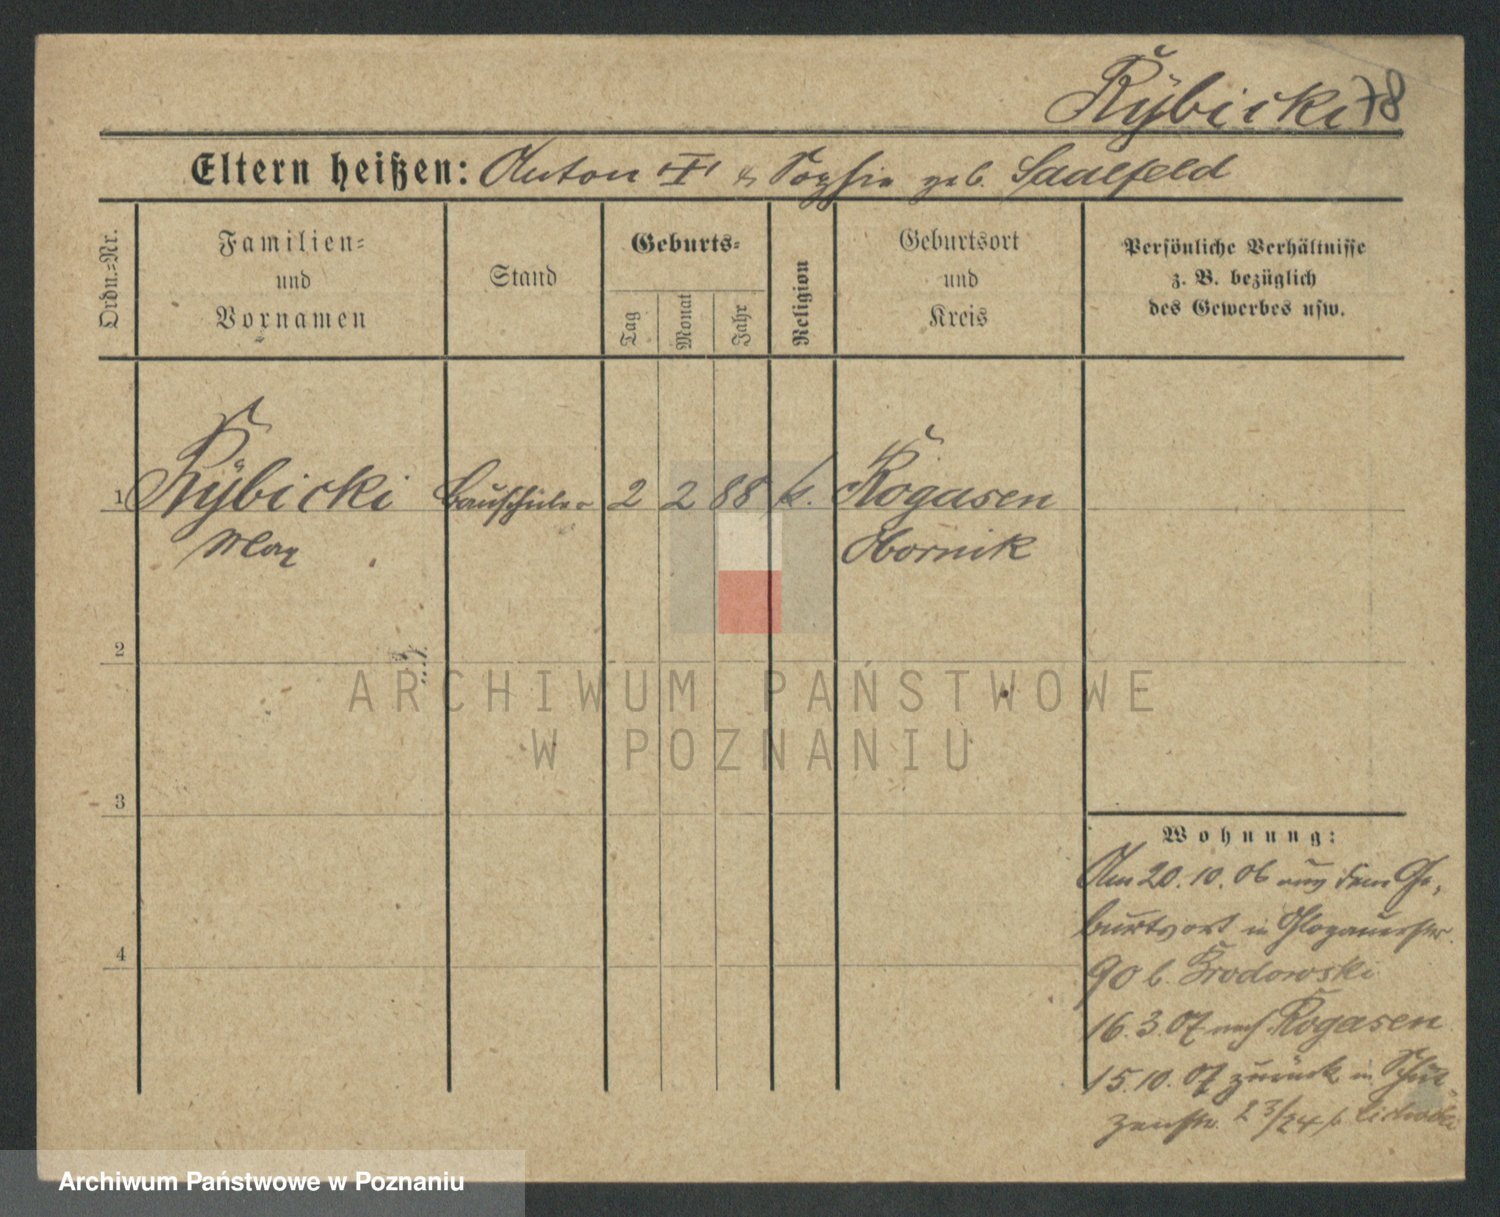 Rÿbicki 78
Eltern heißen: Anton † & Sophie geb. Saalfeld
Ordn.=Nr.
Familien=
und
Vornamen
Stand
Geburts=
Tag
Monat
Jahr
Religion
Geburtsort
und
Kreis
Persönliche Verhältnisse
z. B. bezüglich
des Gewerbes usw.
1 Rÿbicki Bauschüler 2 2 88 k. Rogasen
Max Obornik
2
3
4
ARCHIWUM PAŃSTWOWE
W POZNANIU
Wohnung:
Am 20.10.06 aus dem Ge-
burtsort in Glogauerstr.
90 b. Brodowski
16.3.07 nach Rogasen
15.10.07 zurück in Schüt-
zenstr. 23/24 b.
Archiwum Państwowe w Poznaniu